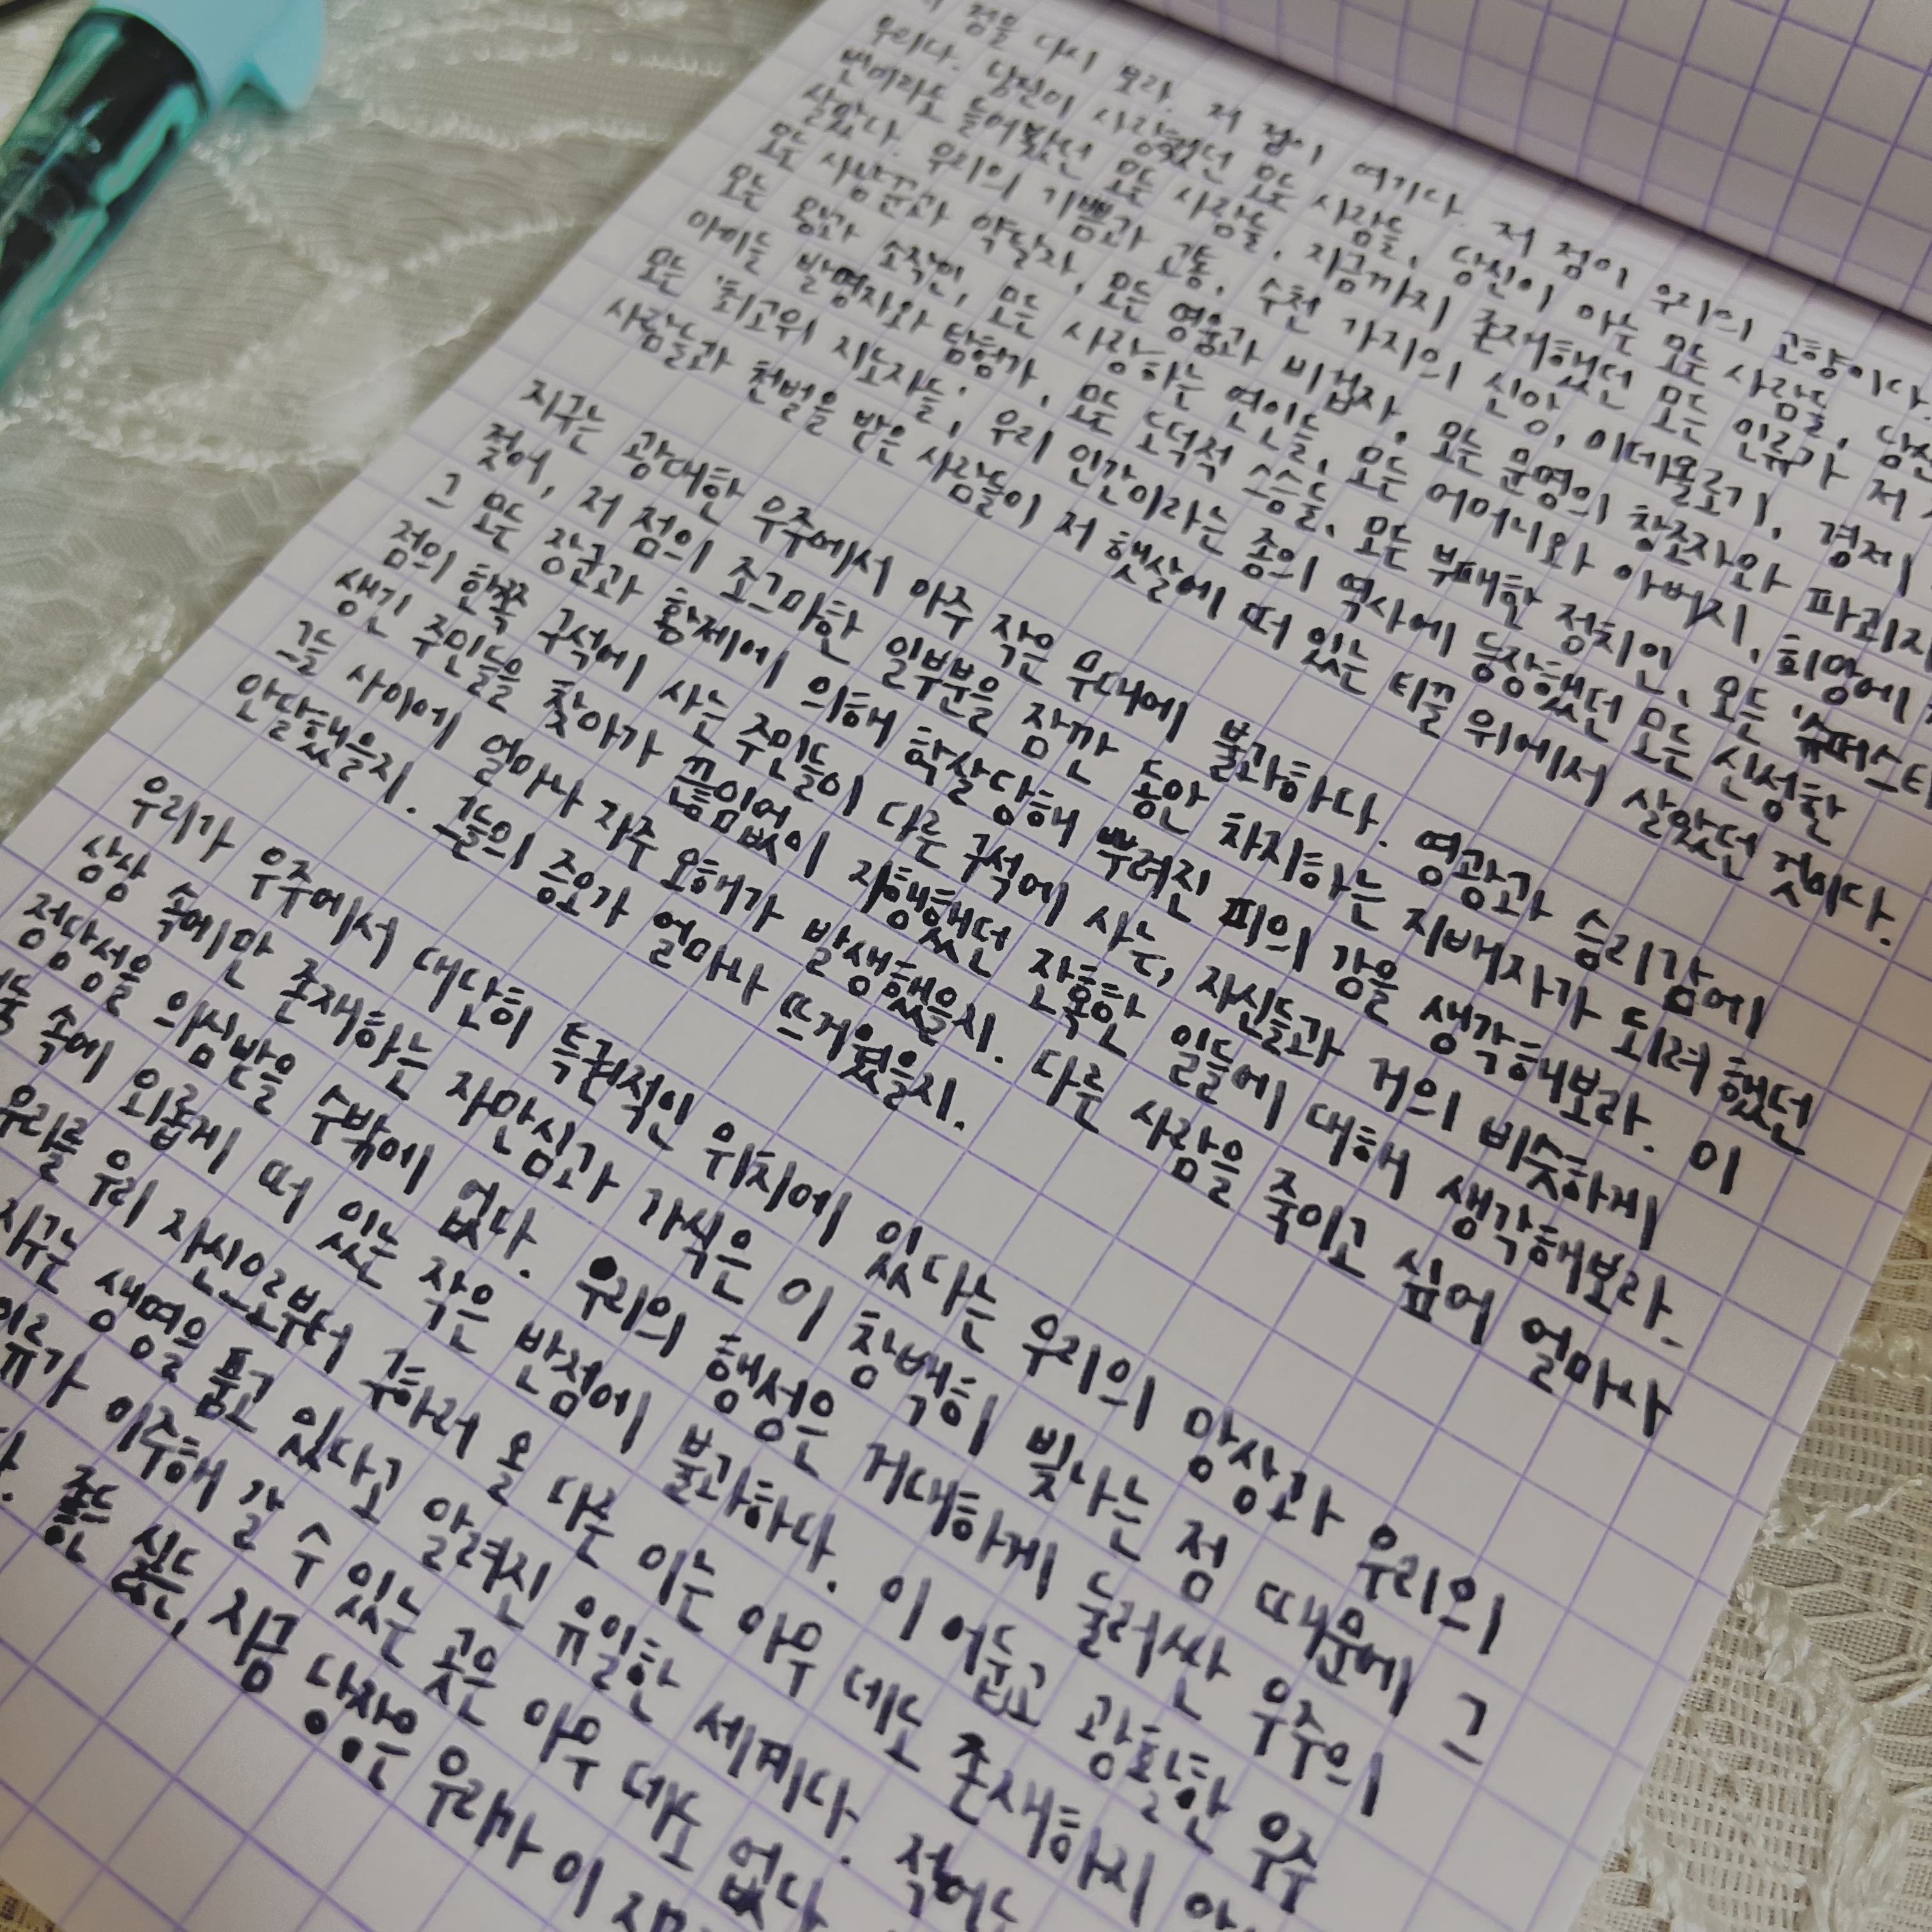 점을 다시 보라. 저 점이 여기다. 저 점이 우리의 고향이다
우리다. 당신이 사랑했던 모든 사람들, 당신이 아는 모든 사람들, 당신
번이라도 들어봤던 모든 사람들, 지금까지 존재했던 모든 인류가 저
살았다. 우리의 기쁨과 고통, 수천 가지의 신앙, 이데올로기, 경제
모든 사냥꾼과 약탈자, 모든 영웅과 비겁자, 모든 문명의 창조자와 파괴자
모든 왕과 소작인, 모든 사랑하는 연인들, 모든 어머니와 아버지, 희망에
아이들 발명자와 탐험가, 모든 도덕적 스승들, 모든 부패한 정치인, 모든 '슈퍼스타
모든 '최고위 지도자들', 우리 인간이라는 종의 역사에 등장했던 모든 신성한
사람들과 천벌을 받은 사람들이 저 햇살에 떠 있는 티끌 위에서 살았던 것이다.
지구는 광대한 우주에서 아주 작은 무대에 불과하다. 영광과 승리감에
젖어, 저 점의 조그마한 일부분을 잠깐 동안 차지하는 지배자가 되려 했던
그 모든 장군과 황제에 의해 학살당해 뿌려진 피의 강을 생각해보라. 이
점의 한쪽 구석에 사는 주민들이 다른 구석에 사는, 자신들과 거의 비슷하게
생긴 주민들을 찾아가 끊임없이 자행했던 잔혹한 일들에 대해 생각해보라.
그들 사이에 얼마나 자주 오해가 발생했을지. 다른 사람을 죽이고 싶어 얼마나
안달했을지. 그들의 증오가 얼마나 뜨거웠을지.
우리가 우주에서 대단히 특권적인 위치에 있다는 우리의 망상과 우리의
상상 속에만 존재하는 자만심과 가식은 이 창백히 빛나는 점 때문에 그
정당성을 의심받을 수밖에 없다. 우리의 행성은 거대하게 둘러싼 우주의
속에 외롭게 떠 있는 작은 반점에 불과하다. 이 어둡고 광활한 우주
우리를 우리 자신으로부터 구하러 올 다른 이는 아무 데도 존재하지
지구는 생명을 품고 있다고 알려진 유일한 세계다. 적어도
인류가 이주해 갈 수 있는 곳은 아무 데도 없다
좋든 싫든, 지금 당장은 우리가 이